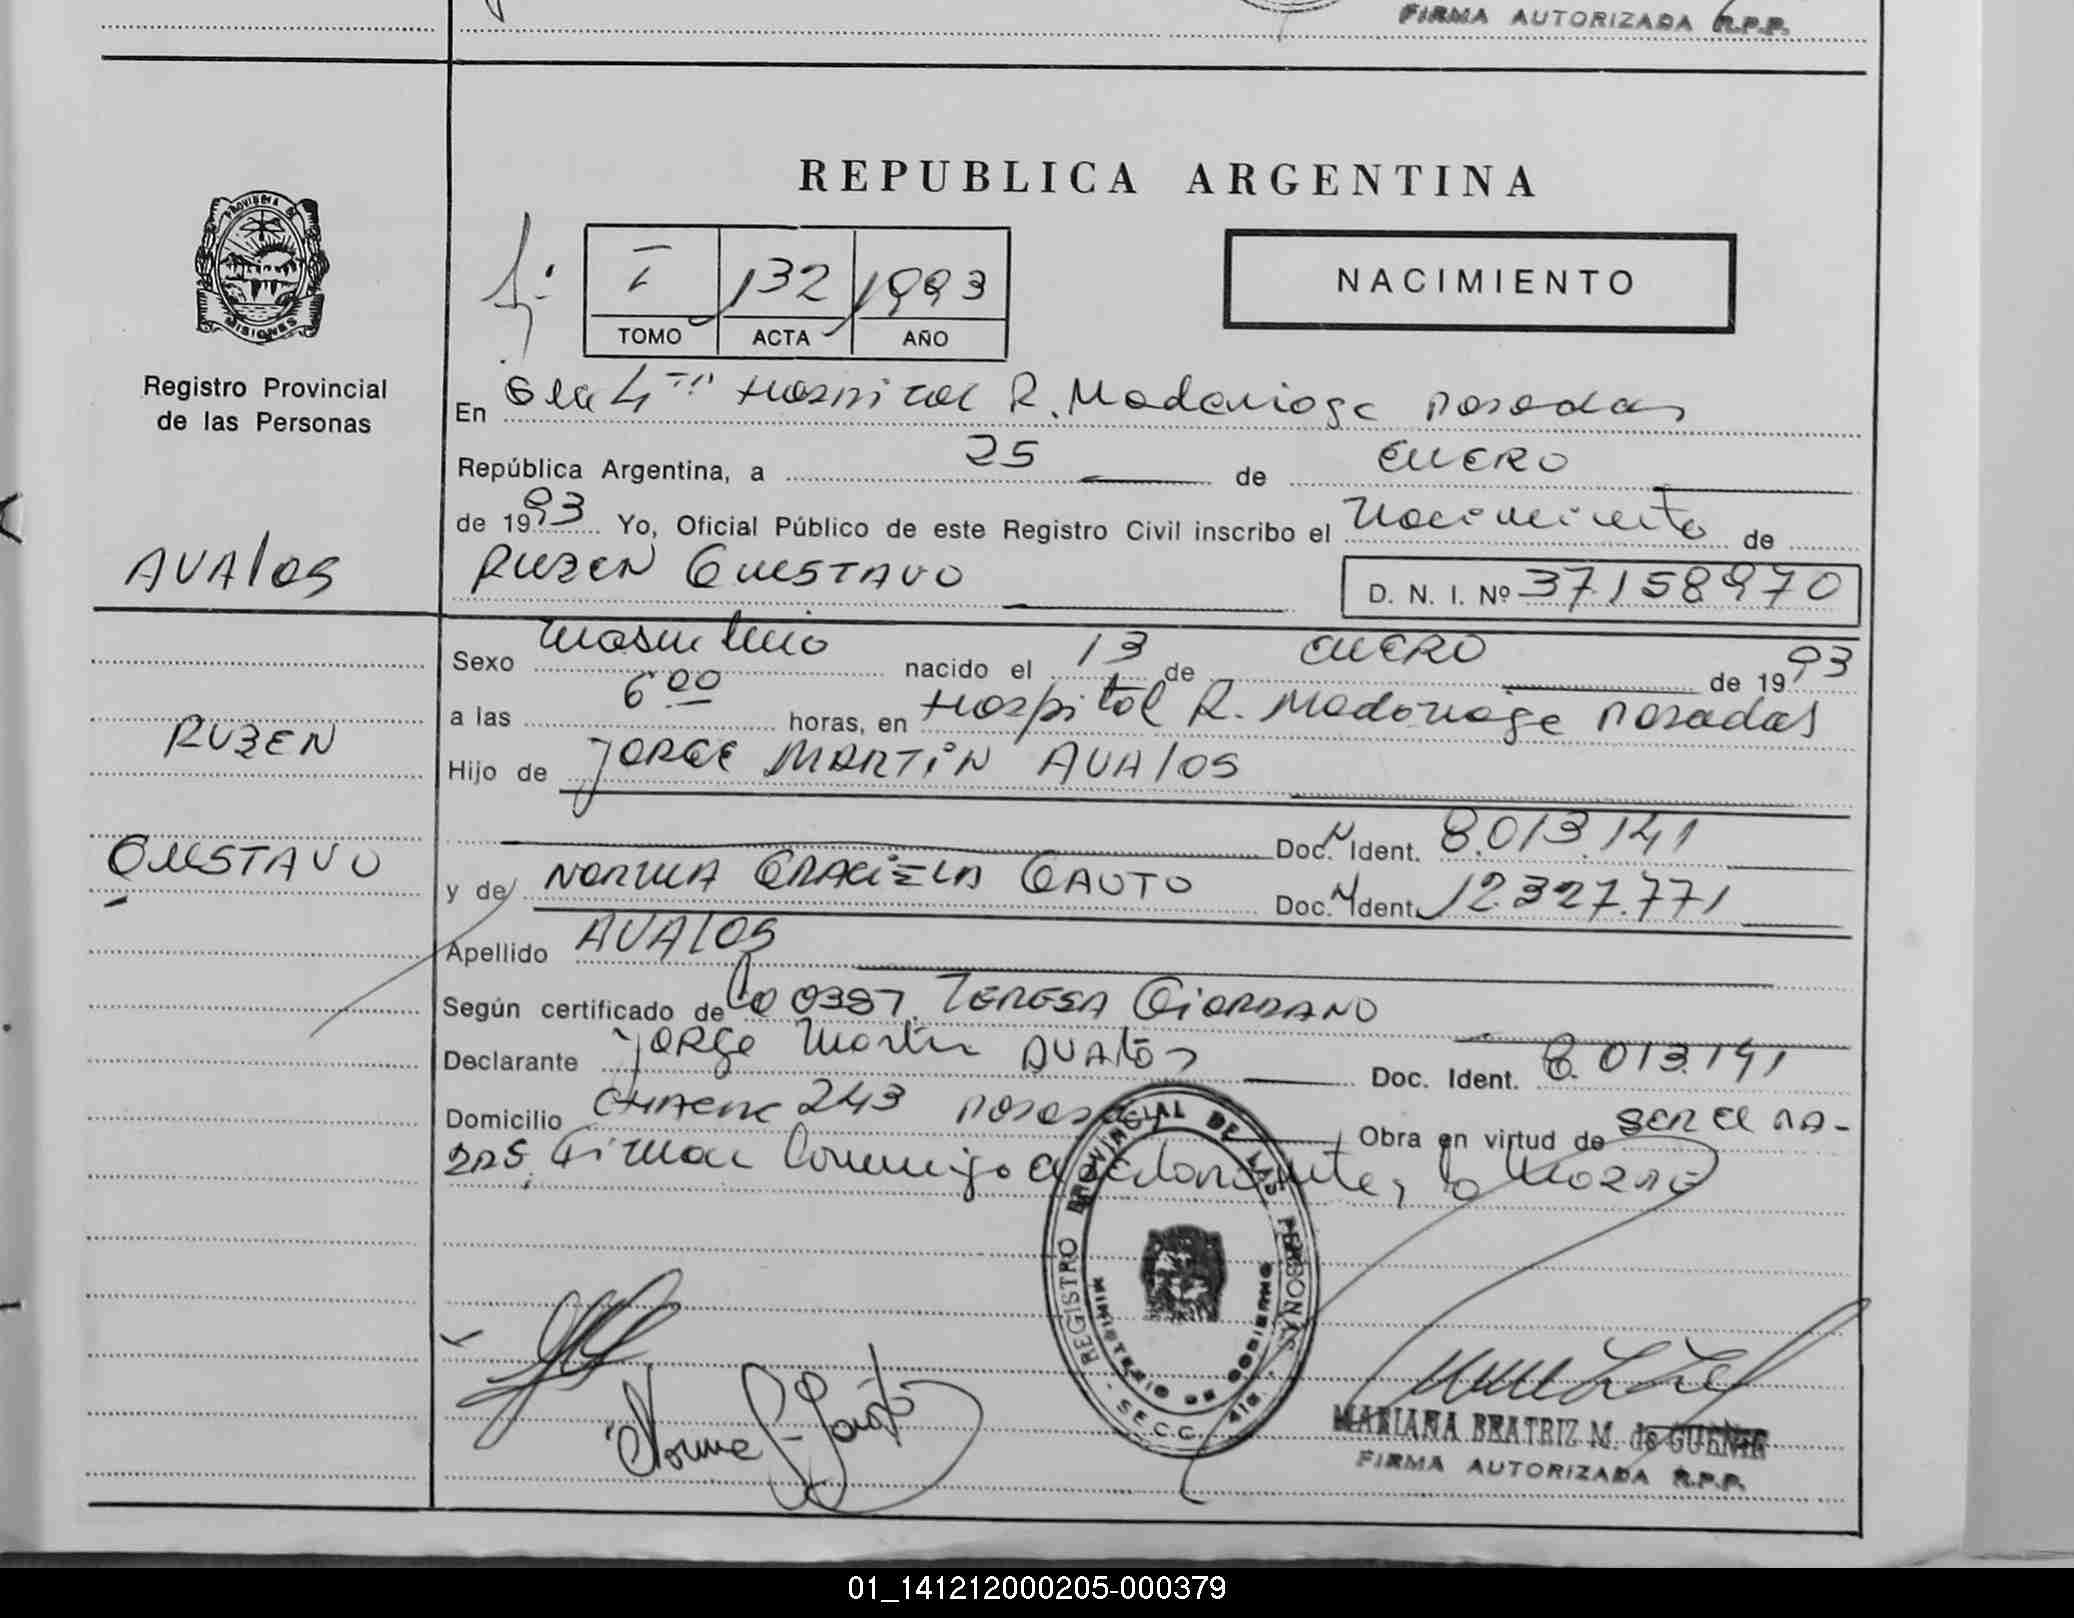 FIRMA AUTORIZADA R.P.P.
REPUBLICA ARGENTINA
PROVINCIA DE
MISIONES
Registro Provincial
de las Personas
I 132 1993
TOMO ACTA AÑO
NACIMIENTO
En Hospital R. Madariaga Posadas
República Argentina, a 25 de ENERO
de 1993 Yo, Oficial Público de este Registro Civil inscribo el Nacimiento de
AVALOS
RUBEN GUSTAVO
D. N. I. Nº 37158970
Sexo nacido el 13 de ENERO de 1993
a las 6 00 horas, en Hospital R. Madariaga Posadas
RUBEN
Hijo de JORGE MARTIN AVALOS
Doc. N Ident. 8.013.141
GUSTAVO
y de NORMA GRACIELA GAUTO Doc. N Ident. 12.327.771
Apellido AVALOS
Según certificado de TERESA GIORDANO
Declarante Jorge Martin AVALOS Doc. Ident. 8.013.141
Domicilio 243 Obra en virtud de SER EL PA-
DRE. Firman conmigo el declarante, la MADRE
REGISTRO PROVINCIAL DE LAS PERSONAS
MINISTERIO DE GOBIERNO
SECC. 4ta.
Norma G. Gauto
MARIANA BEATRIZ M. de
FIRMA AUTORIZADA R.P.P.
01_141212000205-000379